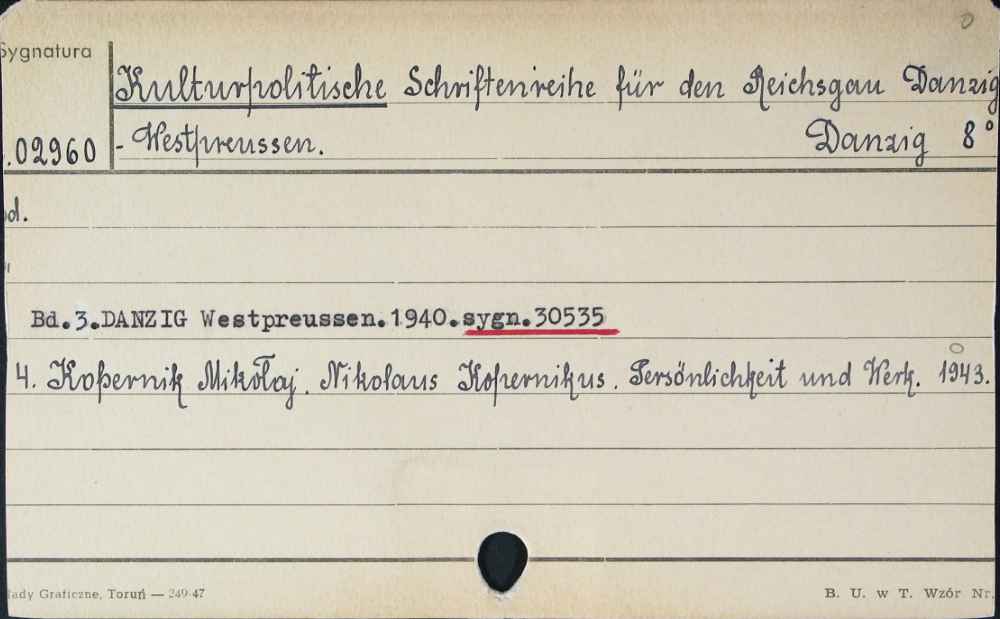 Sygnatura
Kulturpolitische Schriftenreihe für den Reichsgau Danzig
.02960 - Westpreussen. Danzig 8°
bd.
Bd.3.DANZIG Westpreussen.1940.sygn.30535
4. Kopernik Mikołaj. Nikolaus Kopernikus. Persönlichkeit und Werk. 1943.
Graficzne, Toruń — 249-47 B. U. w T. Wzór Nr.